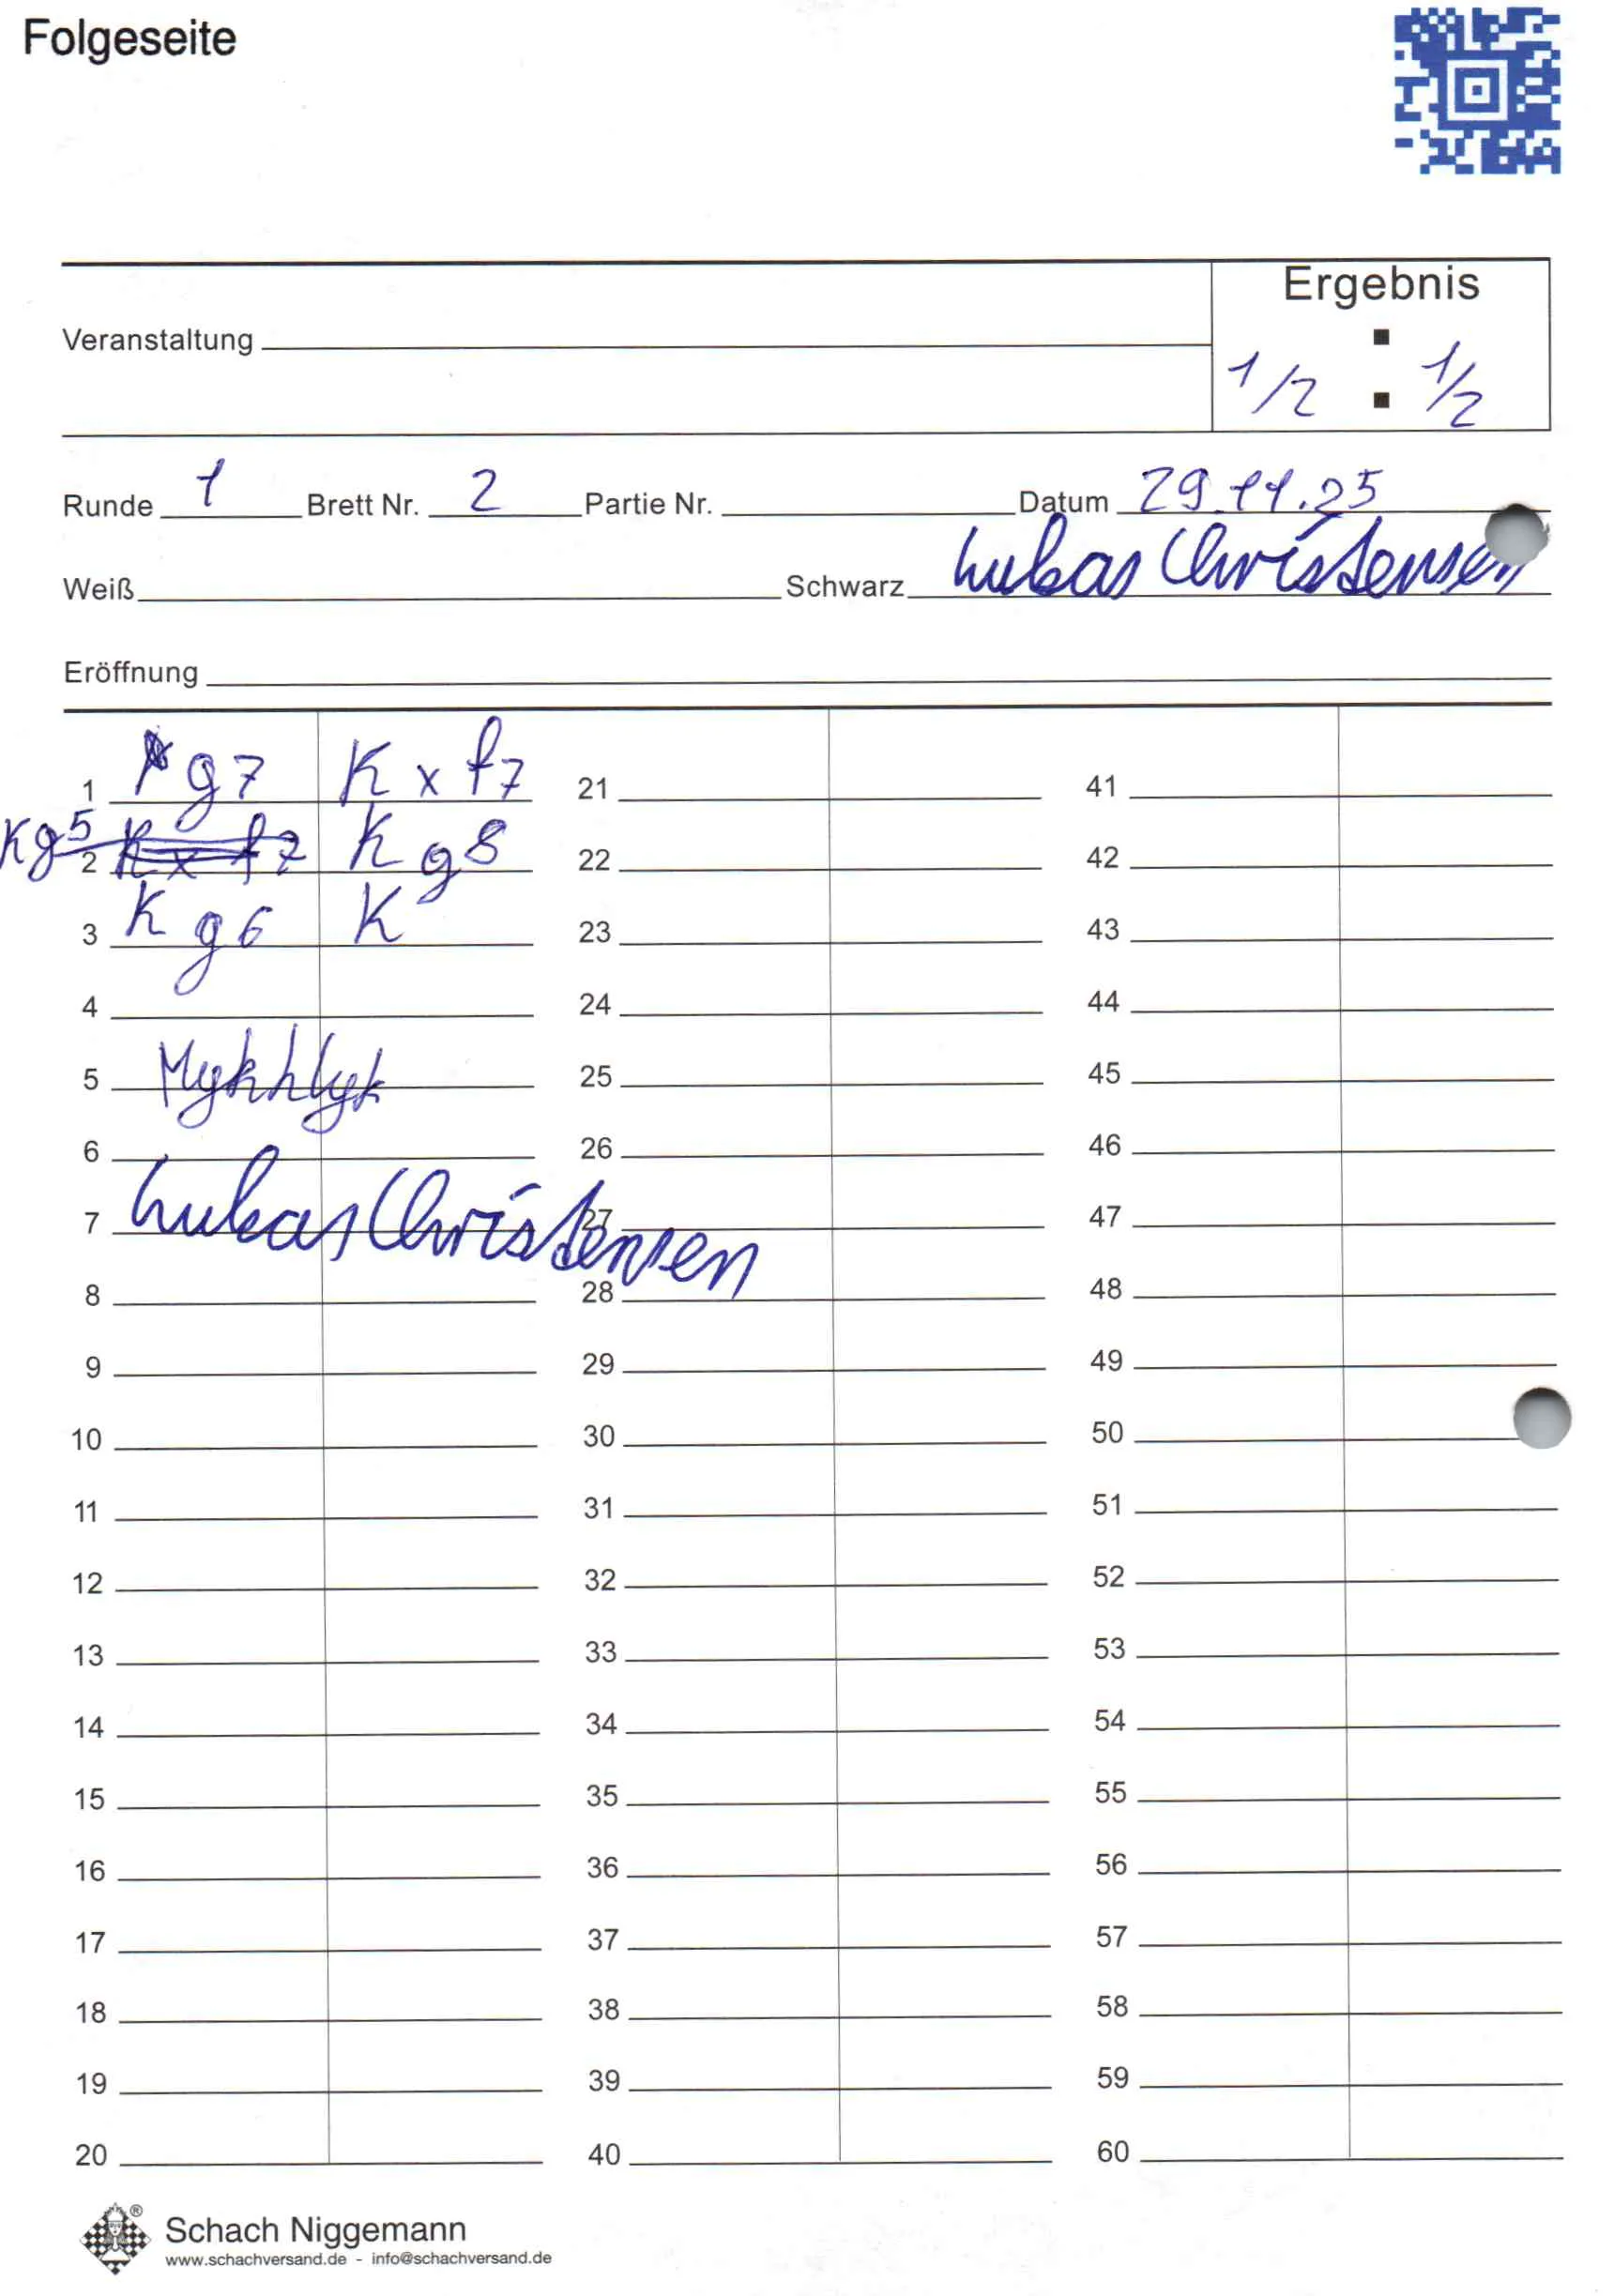 Folgeseite
Ergebnis
Veranstaltung
1/2 : 1/2
Runde 1 Brett Nr. 2 Partie Nr. Datum 29.11.25
Weiß Schwarz Lukas Christensen
Eröffnung
1 g7 K x f7 21 41
Kg5 2 K x f7 K g8 22 42
3 K g6 K 23 43
4 24 44
5 25 45
6 26 46
7 Lukas Christensen 27 47
8 28 48
9 29 49
10 30 50
11 31 51
12 32 52
13 33 53
14 34 54
15 35 55
16 36 56
17 37 57
18 38 58
19 39 59
20 40 60
® Schach Niggemann
www.schachversand.de - info@schachversand.de